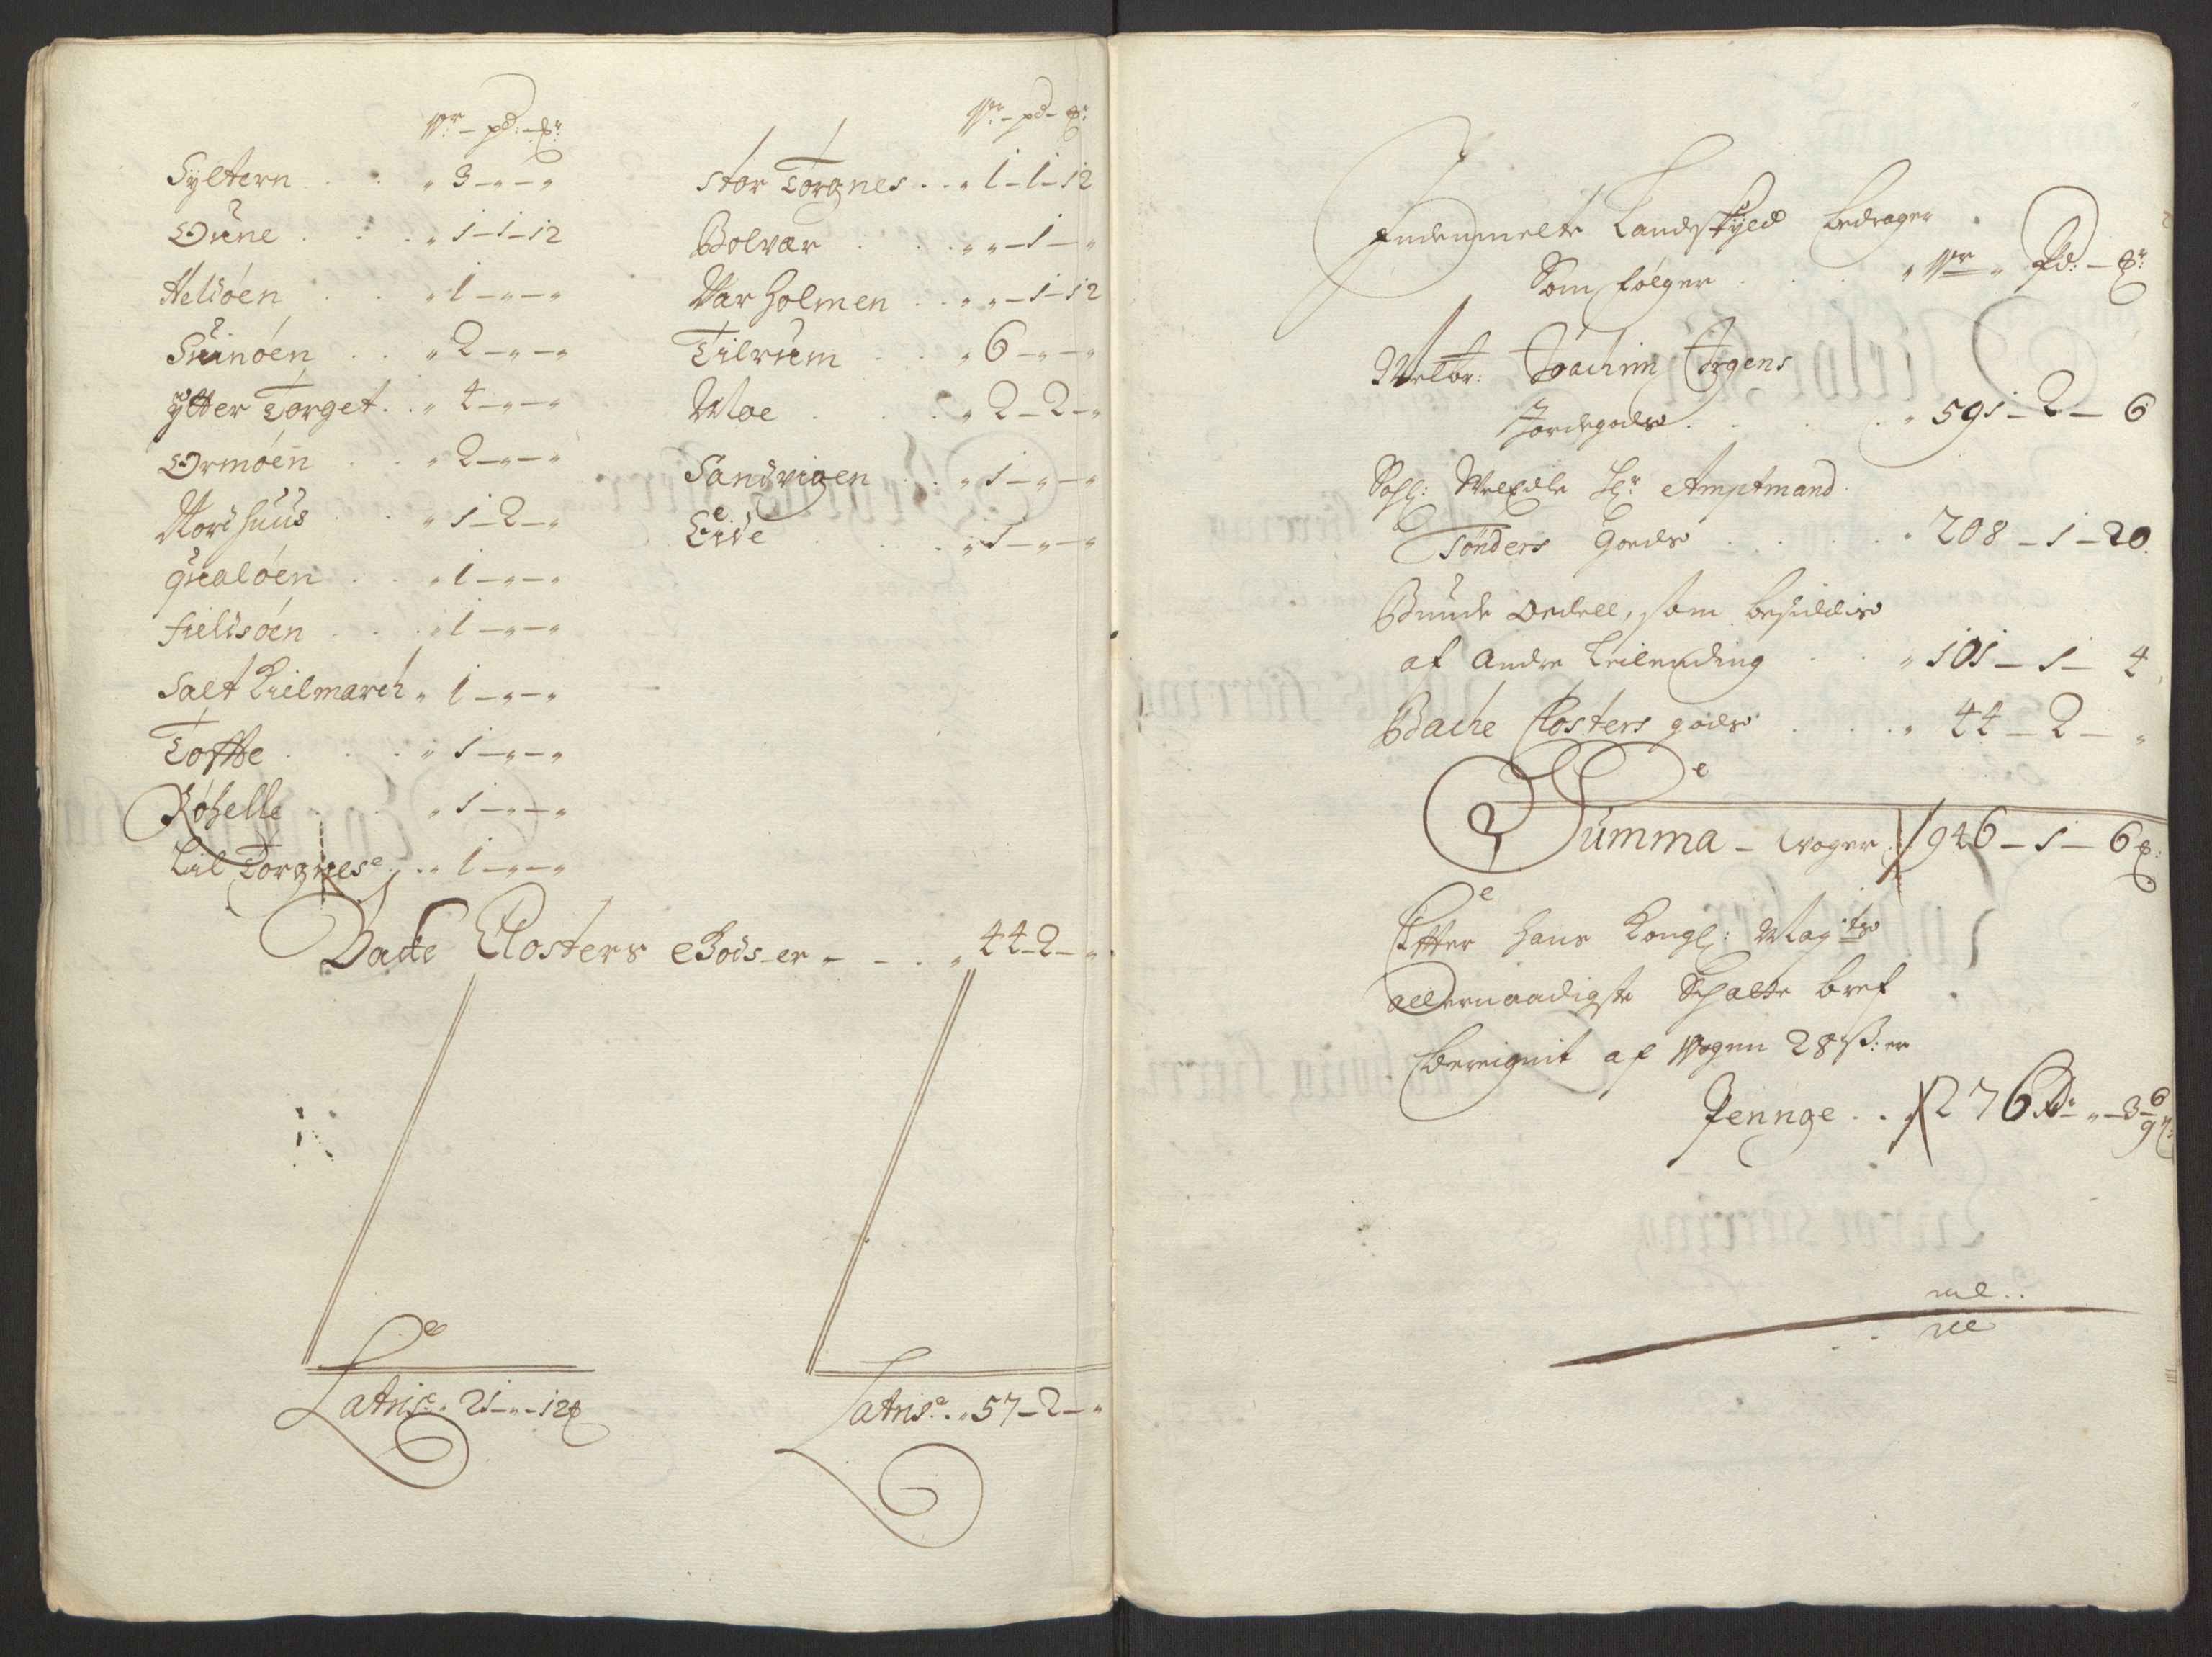 Wr - pd: - Xr:
Syltern . . „ 3 - „ - „
Oune . . . „ 1 - 1 - 12
Heliöen . . „ 1 - „ - „
Suinöen . . „ 2 - „ - „
ytter Torget . . „ 4 - „ - „
Ormöen . . „ 2 - „ - „
Nord huus . . „ 1 - 2 - „
qualöen . . „ 1 - „ - „
fieldsöen . . . „ 1 - „ - „
Salt Kielmarch „ 1 - „ - „
Tofte . . . „ 1 - „ - „
Röhelle . . „ 1 - „ - „
Lil Torgnes . . „ 1 - „ - „
Wr - pd - Xr:
stor Torgnes . . „ 1 - 1 - 12
Bolvær . . . „ „ - 1 - „
Varholmen . . „ „ - 1 - 12
Tilrum . . „ 6 - „ - „
Moe . . . „ 2 - 2 - „
Sandvigen . . „ 1 - „ - „
Eide . . . „ 1 - „ - „
Bache Closters Gods er - - . „ 44 - 2 - „
Latris . „ 21 - „ - 12
Latris . . „ 57 - 2 - „
Indenmelte Landskyld bedrager
Som følger . . . „ Wr „ Pd: - Xr:
Welbr: Joachim Irgens
Jordegods . . . . „ 591 - 2 - 6
Sahl: Weledle Hr Amptmand
Tönders Gods . . . . „ 208 - 1 - 20
Bunde odell, som besiddis
af Andre Leilending . . „ 101 - 1 - 4
Bache Closters gods . . . „ 44 - 2 - „
Summa - woger . 946 - 1 - 6
Efter hans Kongl: May:ts
allernaadigste Schatte bref
bereignit af Wogen 28 ß: er
Pennge . . 276 Rd: „ - 3 - 6